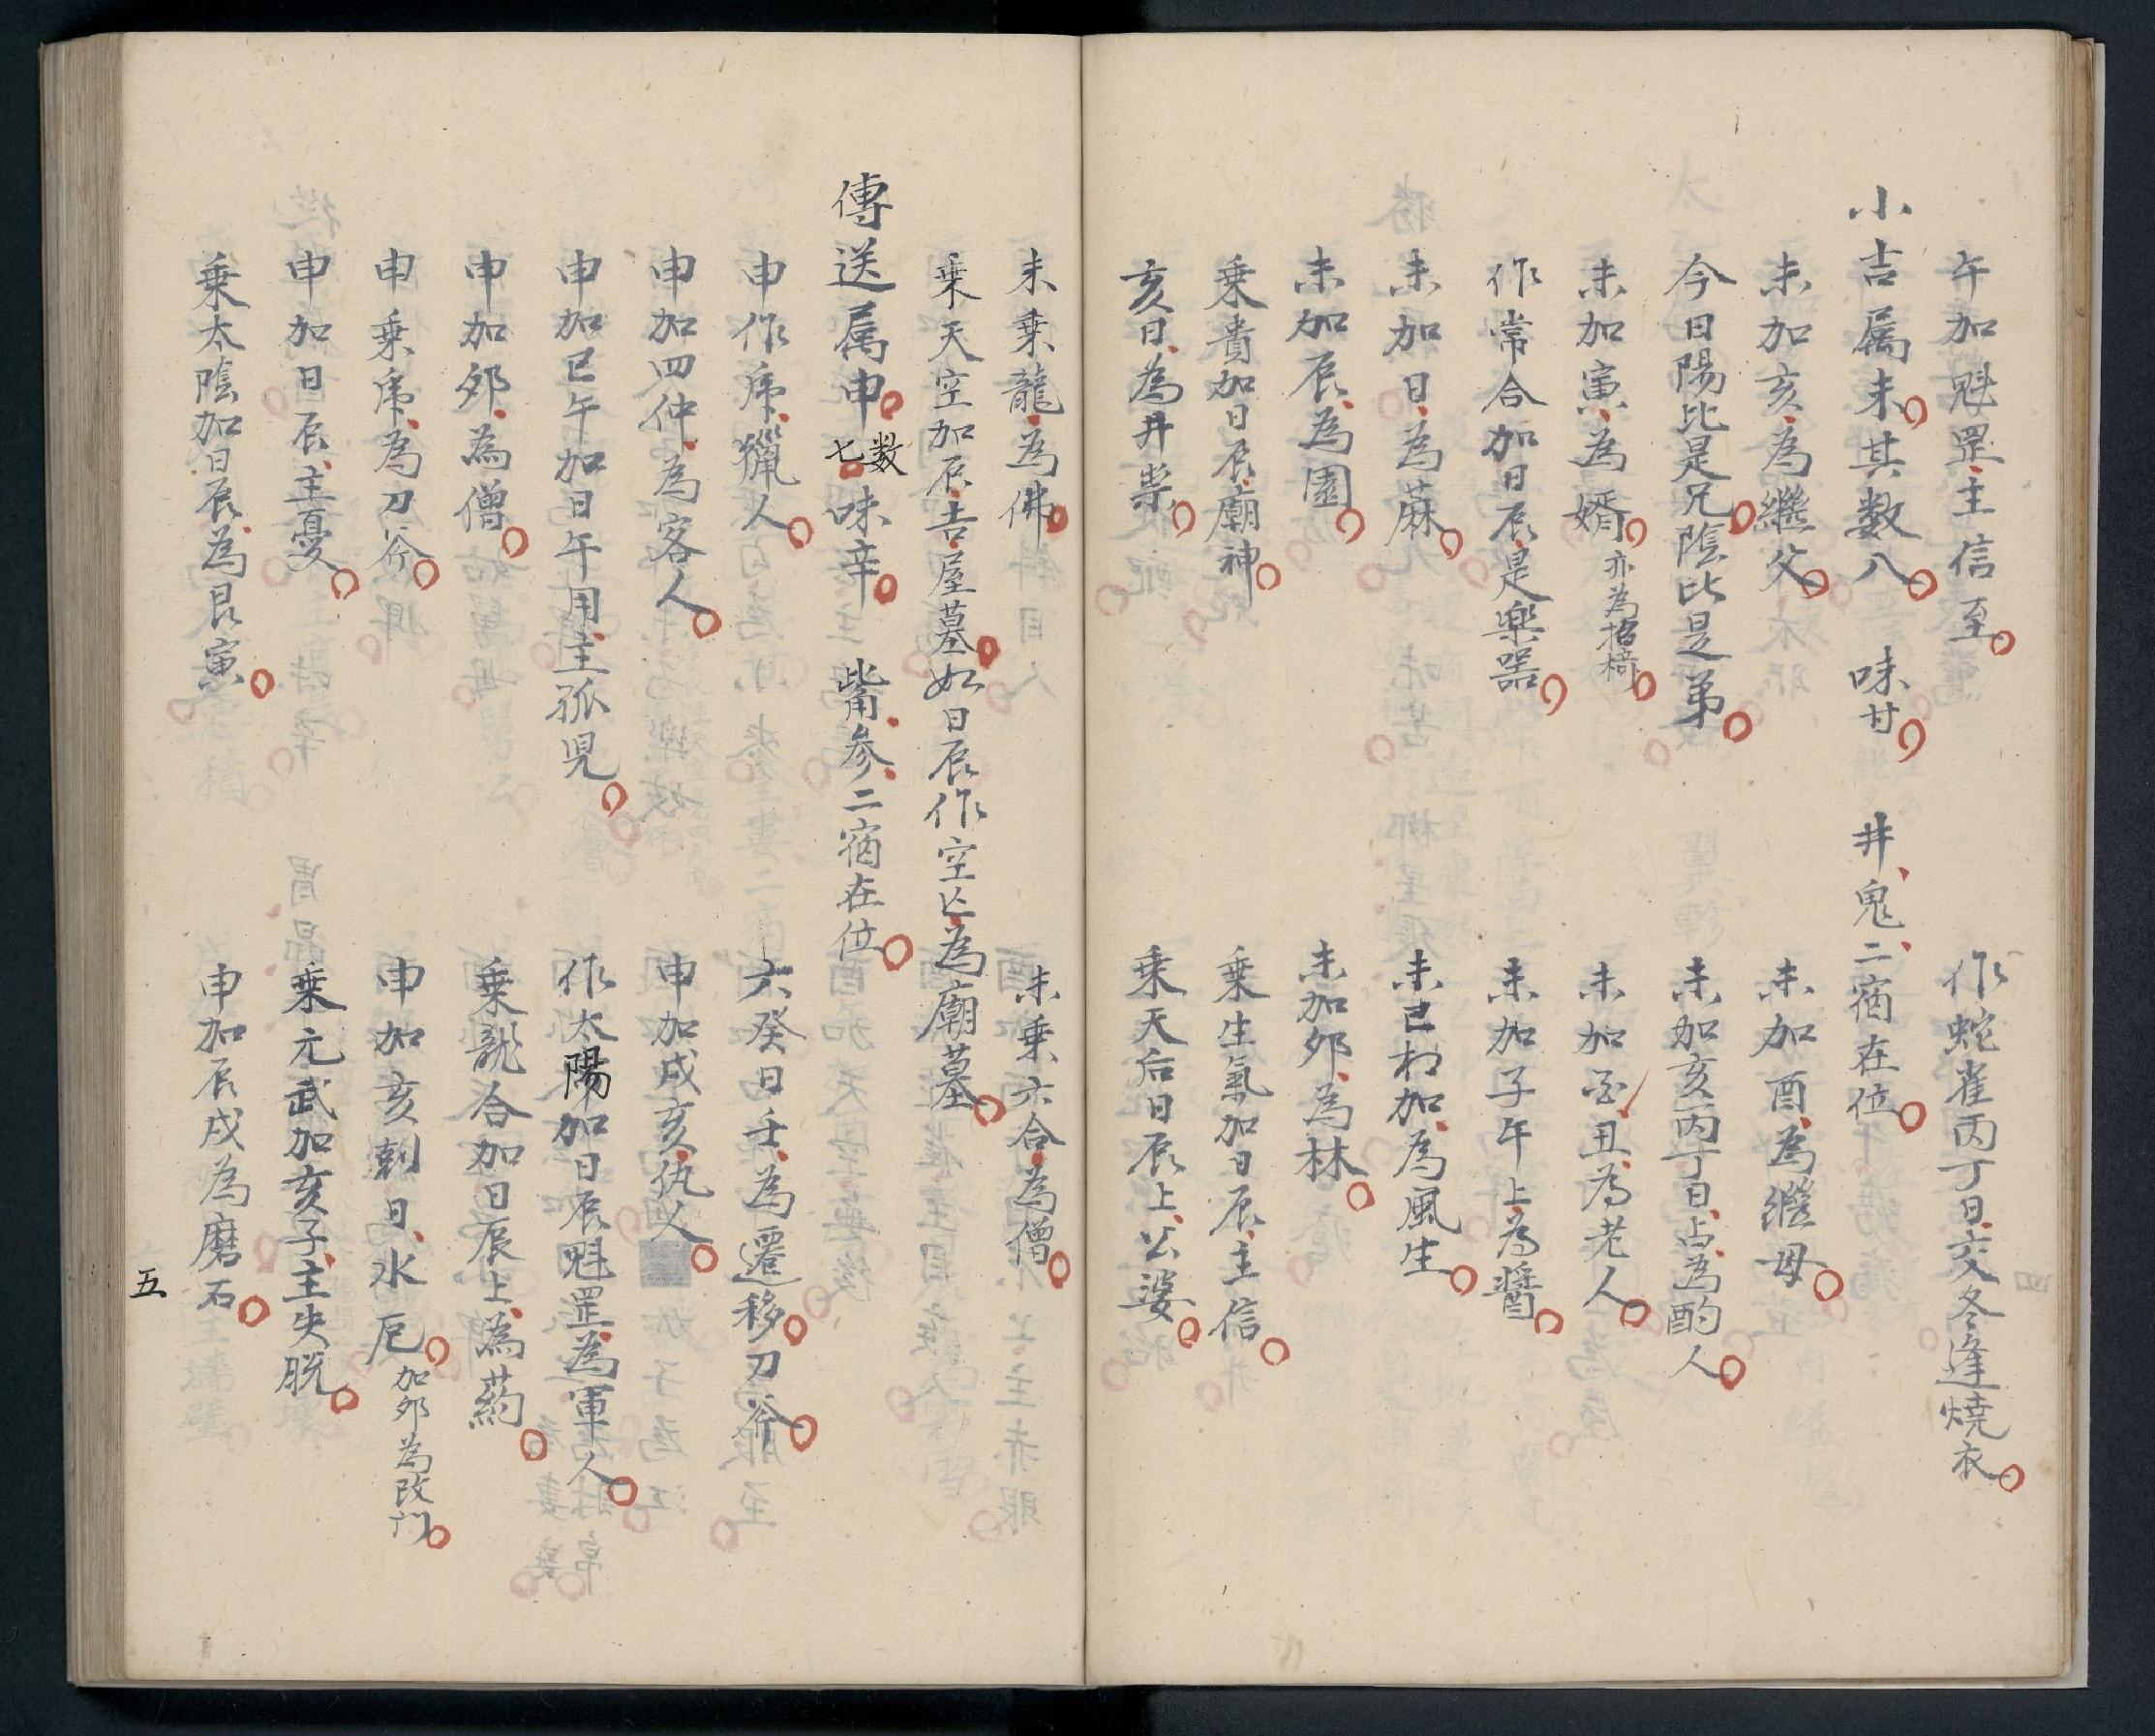 午加魁罡主信至 作蛇雀丙丁日交冬逢燒衣
小吉属未其数八 味甘 井鬼二宿在位
未加亥為繼父 未加酉為繼母
今日陽比是兄陰比是弟 未加亥丙丁日占為酌人
未加寅為婿亦為招椅 未加 丑為老人
作常合加日辰是樂器 未加子午上為醬
未加日為蔴 未已相加為風生
未加辰為園 未加夘為林
乗貴加日辰廟神 乗生氣加日辰主信
亥日為井祟 乗天后日辰上公婆
未乗龍為佛 未乗六合為僧
乗天空加辰吉屋墓如日辰作空亡為廟墓
傳送属申数七味辛 觜参二宿在位
申作乕獵人 六癸日壬為遷移刀斧
申加四仲為客人 申加戌亥仇人
申加巳午加日午用主孤児 作太陽加日辰魁罡為軍人
申加夘為僧 乗龍合加日辰上為葯
申乗乕為刀斧 申加亥剋日水厄加夘為改门
申加日辰主憂 乗元武加亥子主失脱
乗太陰加日辰為艮寅 申加辰戌為磨石
五